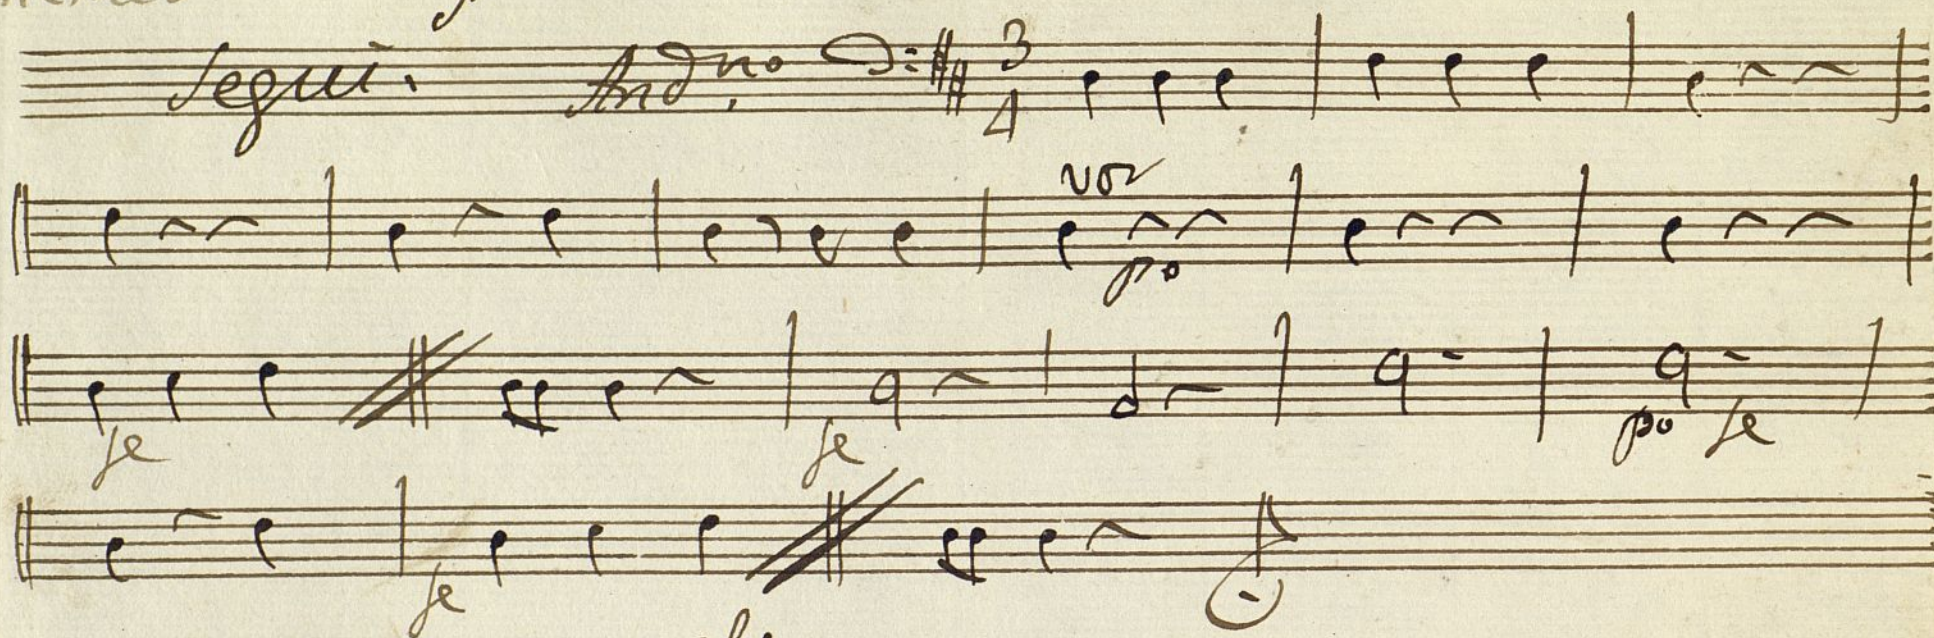 Segui. And.no 3 4
voz
po
fe fe po fe
fe